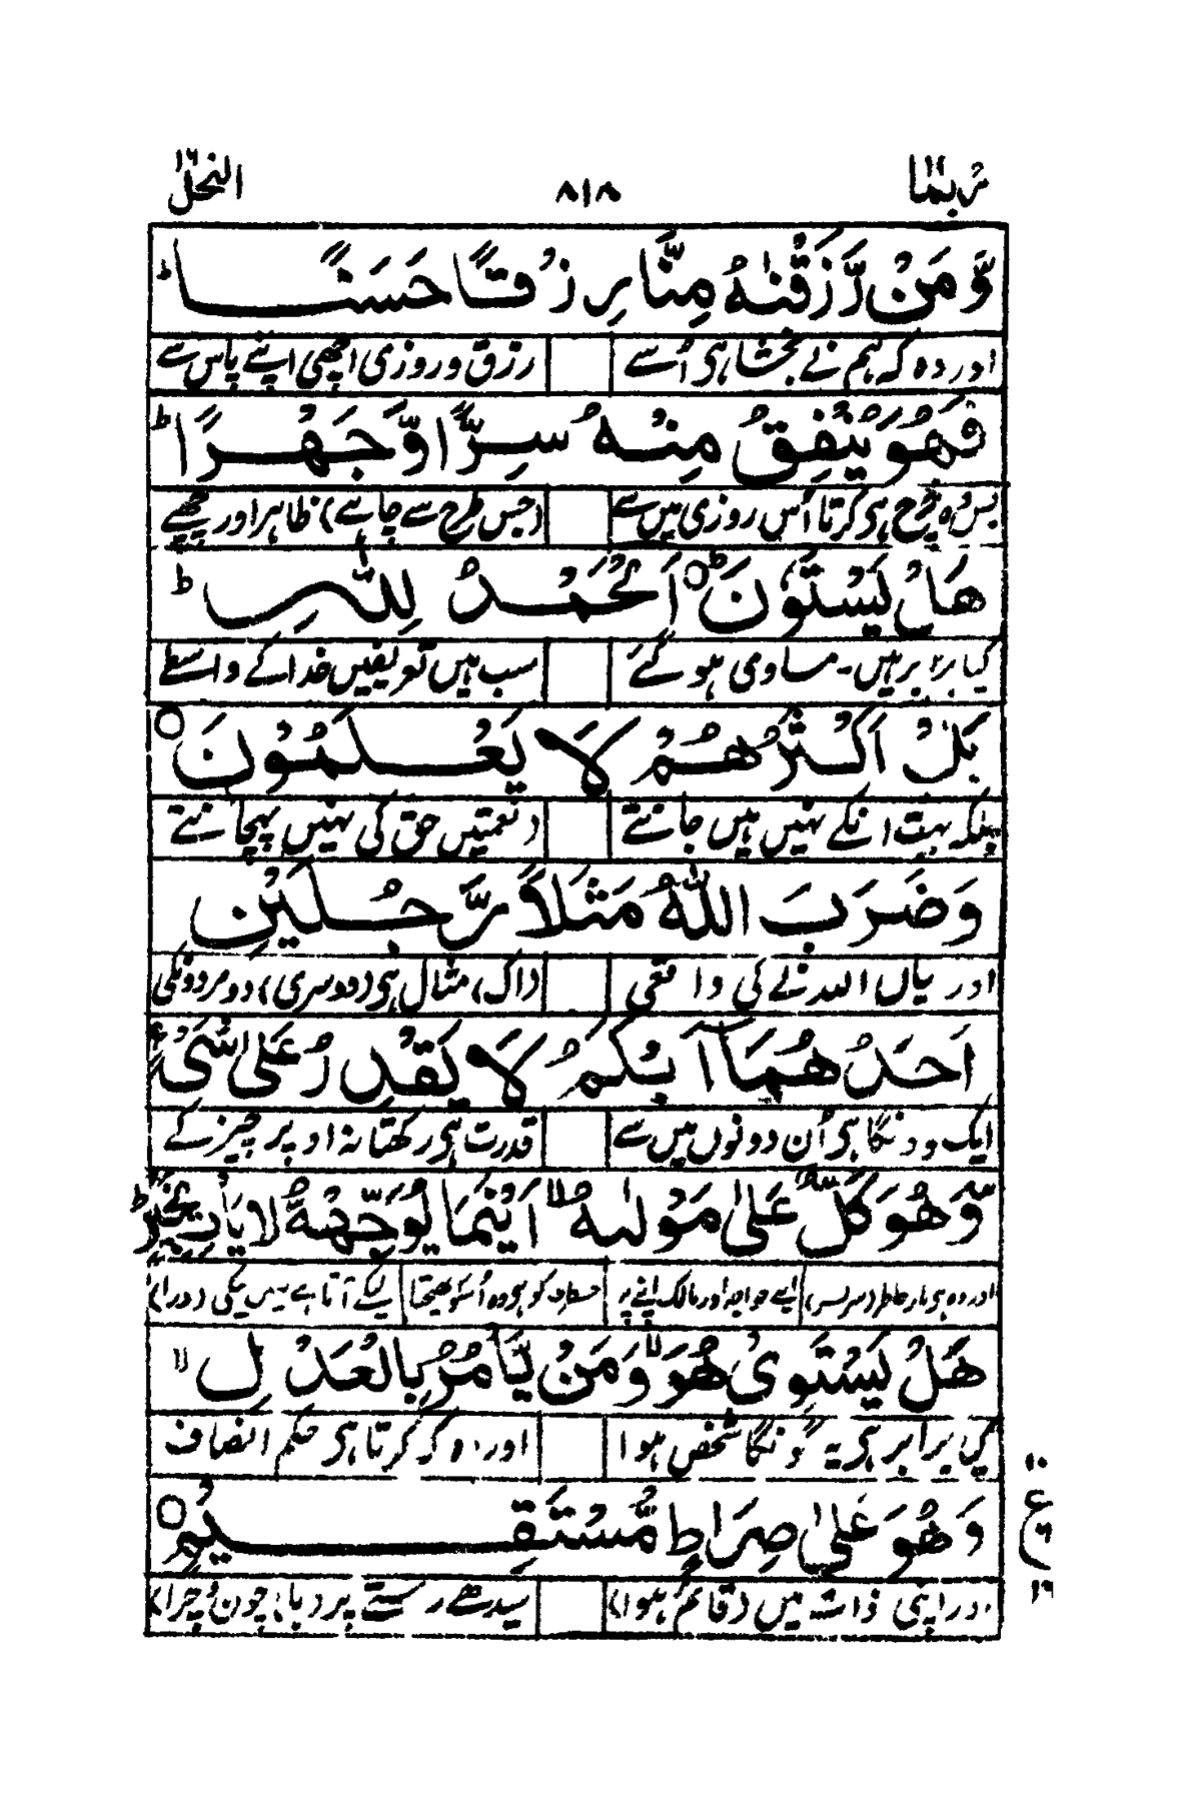 ربما ۱۴ ۸۱۸ النحل ۱۶
وَّمَنْ رَّزَقْنٰهُ مِنَّا رِزْقًا حَسَنًا ؕ
اور وہ کہ ہم نے بخشا ہی اُسے رزق و روزی اچھی اپنے پاس سے
فَهُوَ يُنْفِقُ مِنْهُ سِرًّا وَّجَهْرًا ؕ
پس وہ خرچ ہی کرتا اُس روزی میں سے (جس طرح سے چاہے) ظاہر اور چھپے
هَلْ يَسْتَوٗنَ ؕ اَلْحَمْدُ لِلّٰهِ ؕ
کیا برابر ہیں۔ مساوی ہو گئے سب ہیں تعریفیں خدا کے واسطے
بَلْ اَكْثَرُهُمْ لَا يَعْلَمُوْنَ ○
بلکہ بہت انکے نہیں ہیں جانتے (نعمتیں حق کی نہیں پہچانتے
وَضَرَبَ اللّٰهُ مَثَلًا رَّجُلَيْنِ
اور یاں اللہ نے کی واقعی (اک) مثال ہی (دوسری) دو مردونکی
اَحَدُهُمَاۤ اَبْكَمُ لَا يَقْدِرُ عَلٰى شَىْءٍ
ایک گونگا ہی اُن دونوں میں سے قدرت ہی رکھتا نہ اوپر چیز کے
وَّهُوَ كَلٌّ عَلٰى مَوْلٰىهُ ۙ اَيْنَمَا يُوَجِّهْهُّ لَا يَاْتِ بِخَيْرٍ ؕ
اور وہ ہی بار خاطر (سربسر) اپنے خواجہ اور مالک اپنے پر کو ہی وہ اُسکو بھیجتا لیکے آتا ہے نہیں نیکی (ذرا)
هَلْ يَسْتَوِىْ هُوَ ۙ وَمَنْ يَّاْمُرُ بِالْعَدْلِ ۙ
کیا برابر ہی یہ گونگا شخص ہوا اور وہ کہ کرتا ہی حکم انصاف
وَهُوَ عَلٰى صِرَاطٍ مُّسْتَقِيْمٍ ○
۱۰ ع ۶ ۱۶
اور اپنی ذات میں (قائم ہوا) سیدھے رستے پر دبا، چون و چرا)